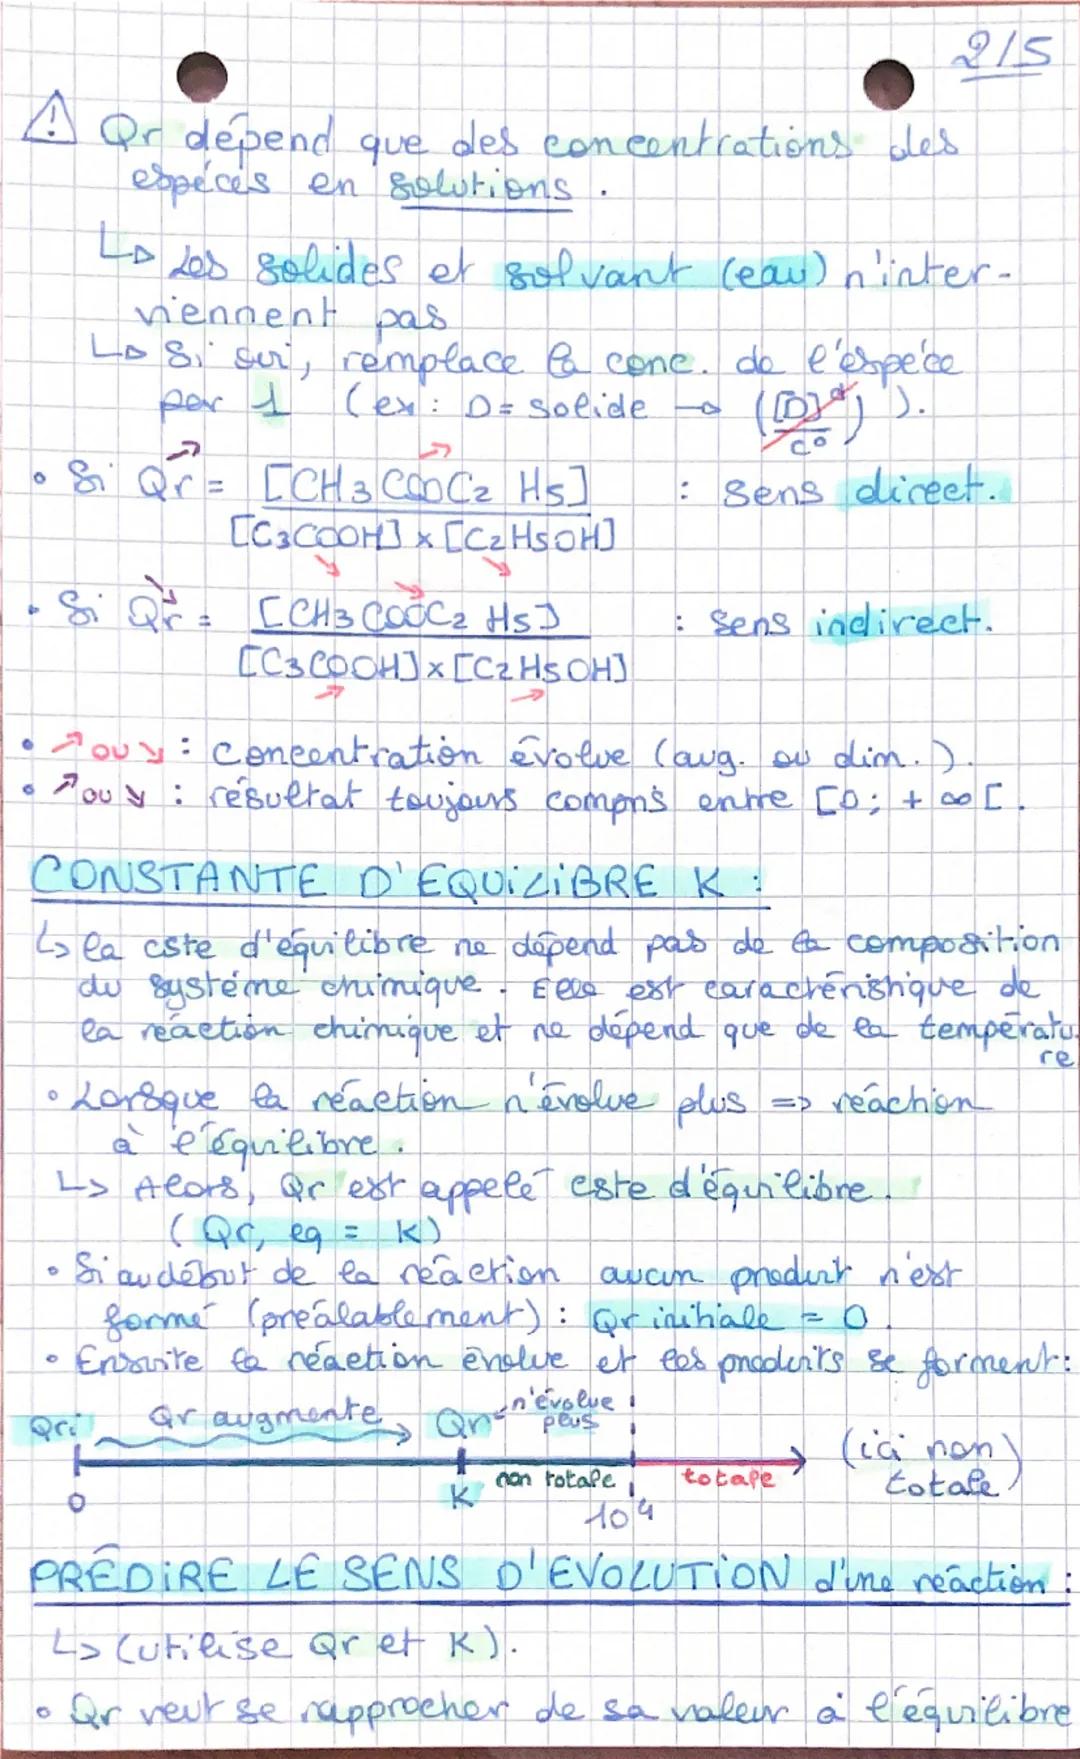 2/5
⚠ Qr dépend que des concentrations des
espéces en solutions.
↳ Les solides et solvant (eau) n'inter-
viennent pas
↳ Si oui, remplace la conc. de l'espéce
par 1 (ex : D = solide → (([D])^d / c°) ).
• Si Qr ↗ = [CH3COOC2H5] ↗ : sens direct.
[C3COOH] x [C2H5OH]
↘ ↘
• Si Qr ↘ = [CH3COOC2H5] ↘ : sens indirect.
[C3COOH] x [C2H5OH]
↗ ↗
• ↗ ou ↘ : concentration évolue (aug. ou dim.).
• ↗ ou ↘ : résultat toujours compris entre [0; +∞[.
CONSTANTE D'EQUILIBRE K :
↳ la cste d'équilibre ne dépend pas de la composition
du systéme chimique. Elle est caractéristique de
la réaction chimique et ne dépend que de la températu
re
• Lorsque la réaction n'évolue plus => réaction
à l'équilibre.
↳ Alors, Qr est appelé cste d'équilibre.
(Qr, eq = K)
• Si au début de la réaction aucun produit n'est
formé (préalablement) : Qr initiale = 0.
• Ensuite la réaction évolue et les produits se forment :
Qri Qr augmente Qr = n'évolue
plus
non totale totale (ici non
totale)
0 K 10^4
PRÉDIRE LE SENS D'EVOLUTION d'une réaction :
↳ (utilise Qr et K).
• Qr veut se rapprocher de sa valeur à l'équilibre